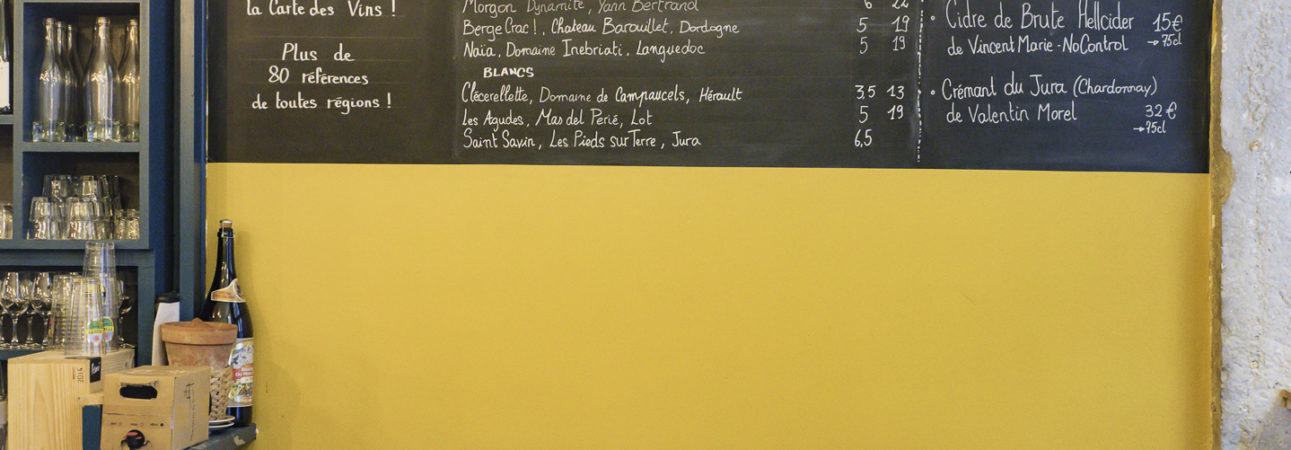 la Carte des Vins !
Plus de
80 références
de toutes régions !
Morgon Dynamite, Yann Bertrand 6 22
Berge Crac !, Chateau Barouillet, Dordogne 5 19
Naïa, Domaine Inebriati, Languedoc 5 19
BLANCS
Clécerellette, Domaine de Campaucels, Hérault 3,5 13
Les Agudes, Mas del Périé, Lot 5 19
Saint Savin, Les Pieds sur Terre, Jura 6,5
• Cidre de Brute Hellcider 15€
de Vincent Marie - No Control → 75cl
• Crémant du Jura (Chardonnay)
de Valentin Morel 32€
→ 75cl